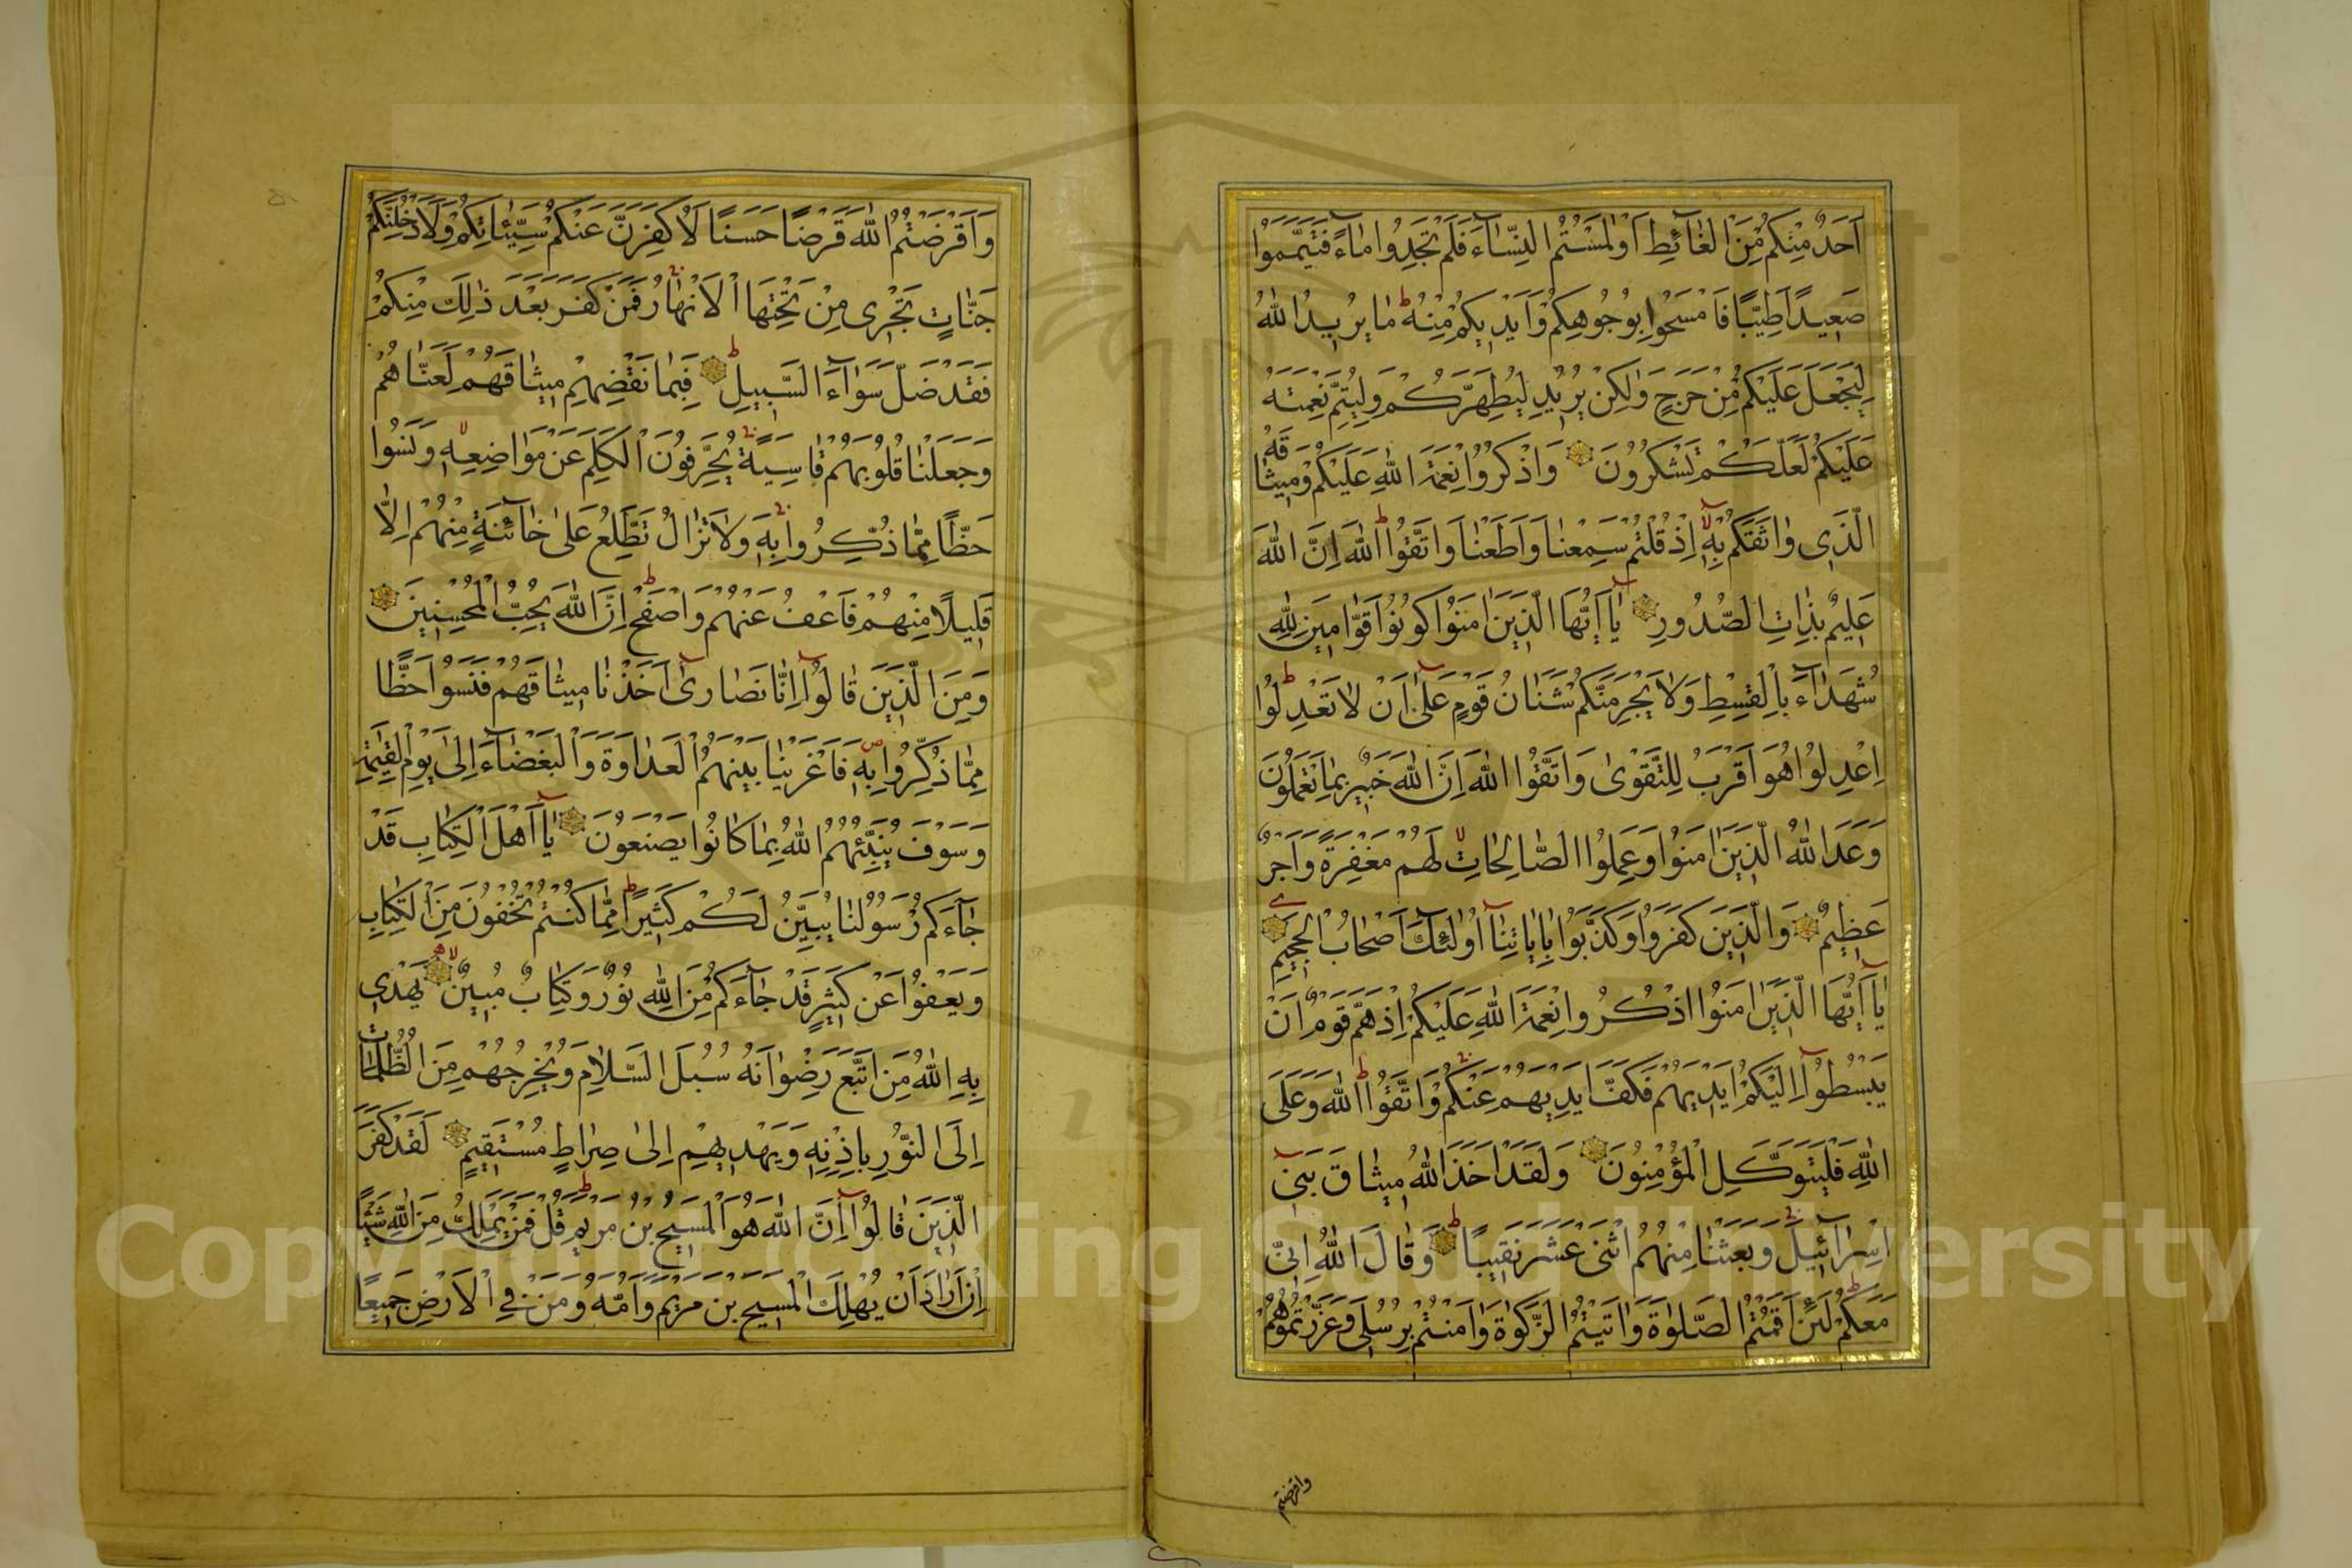 اَحَدٌ مِنْكُمْ مِنَ الْغَآئِطِ اَوْلٰمَسْتُمُ النِّسَآءَ فَلَمْ تَجِدُوا مَآءً فَتَيَمَّمُوا
صَعِيدًا طَيِّبًا فَامْسَحُوا بِوُجُوهِكُمْ وَاَيْدِيكُمْ مِنْهُ ط مَا يُرِيدُ اللّٰهُ
لِيَجْعَلَ عَلَيْكُمْ مِنْ حَرَجٍ وَلٰكِنْ يُرِيدُ لِيُطَهِّرَكُمْ وَلِيُتِمَّ نِعْمَتَهُ
عَلَيْكُمْ لَعَلَّكُمْ تَشْكُرُونَ وَاذْكُرُوا نِعْمَةَ اللّٰهِ عَلَيْكُمْ وَمِيثَاقَهُ
الَّذِى وَاثَقَكُمْ بِهِ لا اِذْ قُلْتُمْ سَمِعْنَا وَاَطَعْنَا وَاتَّقُوا ط اللّٰهَ اِنَّ اللّٰهَ
عَلِيمٌ بِذَاتِ الصُّدُورِ يَآ اَيُّهَا الَّذِينَ اٰمَنُوا كُونُوا قَوَّامِينَ لِلّٰهِ
شُهَدَآءَ بِالْقِسْطِ وَلَا يَجْرِمَنَّكُمْ شَنَاٰنُ قَوْمٍ عَلٰٓى اَنْ لَا تَعْدِلُوا ط
اِعْدِلُوا هُوَ اَقْرَبُ لِلتَّقْوٰى وَاتَّقُوا اللّٰهَ اِنَّ اللّٰهَ خَبِيرٌ بِمَا تَعْمَلُونَ
وَعَدَ اللّٰهُ الَّذِينَ اٰمَنُوا وَعَمِلُوا الصَّالِحَاتِ لا لَهُمْ مَغْفِرَةٌ وَاَجْرٌ
عَظِيمٌ وَالَّذِينَ كَفَرُوا وَكَذَّبُوا بِاٰيَاتِنَآ اُولٰٓئِكَ اَصْحَابُ الْجَحِيمِ
يَآ اَيُّهَا الَّذِينَ اٰمَنُوا اذْكُرُوا نِعْمَةَ اللّٰهِ عَلَيْكُمْ اِذْ هَمَّ قَوْمٌ اَنْ
يَبْسُطُوٓا اِلَيْكُمْ اَيْدِيَهُمْ فَكَفَّ اَيْدِيَهُمْ عَنْكُمْ وَاتَّقُوا ط اللّٰهَ وَعَلَى
اللّٰهِ فَلْيَتَوَكَّلِ الْمُؤْمِنُونَ وَلَقَدْ اَخَذَ اللّٰهُ مِيثَاقَ بَنِىٓ
اِسْرَآئِيلَ وَبَعَثْنَا مِنْهُمُ اثْنَىْ عَشَرَ نَقِيبًا ط وَقَالَ اللّٰهُ اِنِّى
مَعَكُمْ ط لَئِنْ اَقَمْتُمُ الصَّلٰوةَ وَاٰتَيْتُمُ الزَّكٰوةَ وَاٰمَنْتُمْ بِرُسُلِى وَعَزَّرْتُمُوهُمْ
واقرضتم
وَاَقْرَضْتُمُ اللّٰهَ قَرْضًا حَسَنًا لَاُكَفِّرَنَّ عَنْكُمْ سَيِّئَاتِكُمْ وَلَاُدْخِلَنَّكُمْ
جَنَّاتٍ تَجْرِى مِنْ تَحْتِهَا الْاَنْهَارُ فَمَنْ كَفَرَ بَعْدَ ذٰلِكَ مِنْكُمْ
فَقَدْ ضَلَّ سَوَآءَ السَّبِيلِ ط فَبِمَا نَقْضِهِمْ مِيثَاقَهُمْ لَعَنَّاهُمْ
وَجَعَلْنَا قُلُوبَهُمْ قَاسِيَةً يُحَرِّفُونَ الْكَلِمَ عَنْ مَوَاضِعِهِ لا وَنَسُوا
حَظًّا مِمَّا ذُكِّرُوا بِهِ وَلَا تَزَالُ تَطَّلِعُ عَلٰى خَآئِنَةٍ مِنْهُمْ اِلَّا
قَلِيلًا مِنْهُمْ فَاعْفُ عَنْهُمْ وَاصْفَحْ ط اِنَّ اللّٰهَ يُحِبُّ الْمُحْسِنِينَ
وَمِنَ الَّذِينَ قَالُوٓا اِنَّا نَصَارٰىٓ اَخَذْنَا مِيثَاقَهُمْ فَنَسُوا حَظًّا
مِمَّا ذُكِّرُوا بِهِ ص فَاَغْرَيْنَا بَيْنَهُمُ الْعَدَاوَةَ وَالْبَغْضَآءَ اِلٰى يَوْمِ الْقِيٰمَةِ
وَسَوْفَ يُنَبِّئُهُمُ اللّٰهُ بِمَا كَانُوا يَصْنَعُونَ يَآ اَهْلَ الْكِتَابِ قَدْ
جَآءَكُمْ رَسُولُنَا يُبَيِّنُ لَكُمْ كَثِيرًا ط مِمَّا كُنْتُمْ تُخْفُونَ مِنَ الْكِتَابِ
وَيَعْفُوا عَنْ كَثِيرٍ قَدْ جَآءَكُمْ مِنَ اللّٰهِ نُورٌ وَكِتَابٌ مُبِينٌ لا يَهْدِى
بِهِ اللّٰهُ مَنِ اتَّبَعَ رِضْوَانَهُ سُبُلَ السَّلَامِ وَيُخْرِجُهُمْ مِنَ الظُّلُمَاتِ
اِلَى النُّورِ بِاِذْنِهِ وَيَهْدِيهِمْ اِلٰى صِرَاطٍ مُسْتَقِيمٍ لَقَدْ كَفَرَ
الَّذِينَ قَالُوٓا اِنَّ اللّٰهَ هُوَ الْمَسِيحُ بْنُ مَرْيَمَ ط قُلْ فَمَنْ يَمْلِكُ مِنَ اللّٰهِ شَيْئًا
اِنْ اَرَادَ اَنْ يُهْلِكَ الْمَسِيحَ بْنَ مَرْيَمَ وَاُمَّهُ وَمَنْ فِى الْاَرْضِ جَمِيعًا
Copyright © King Saud University
1957